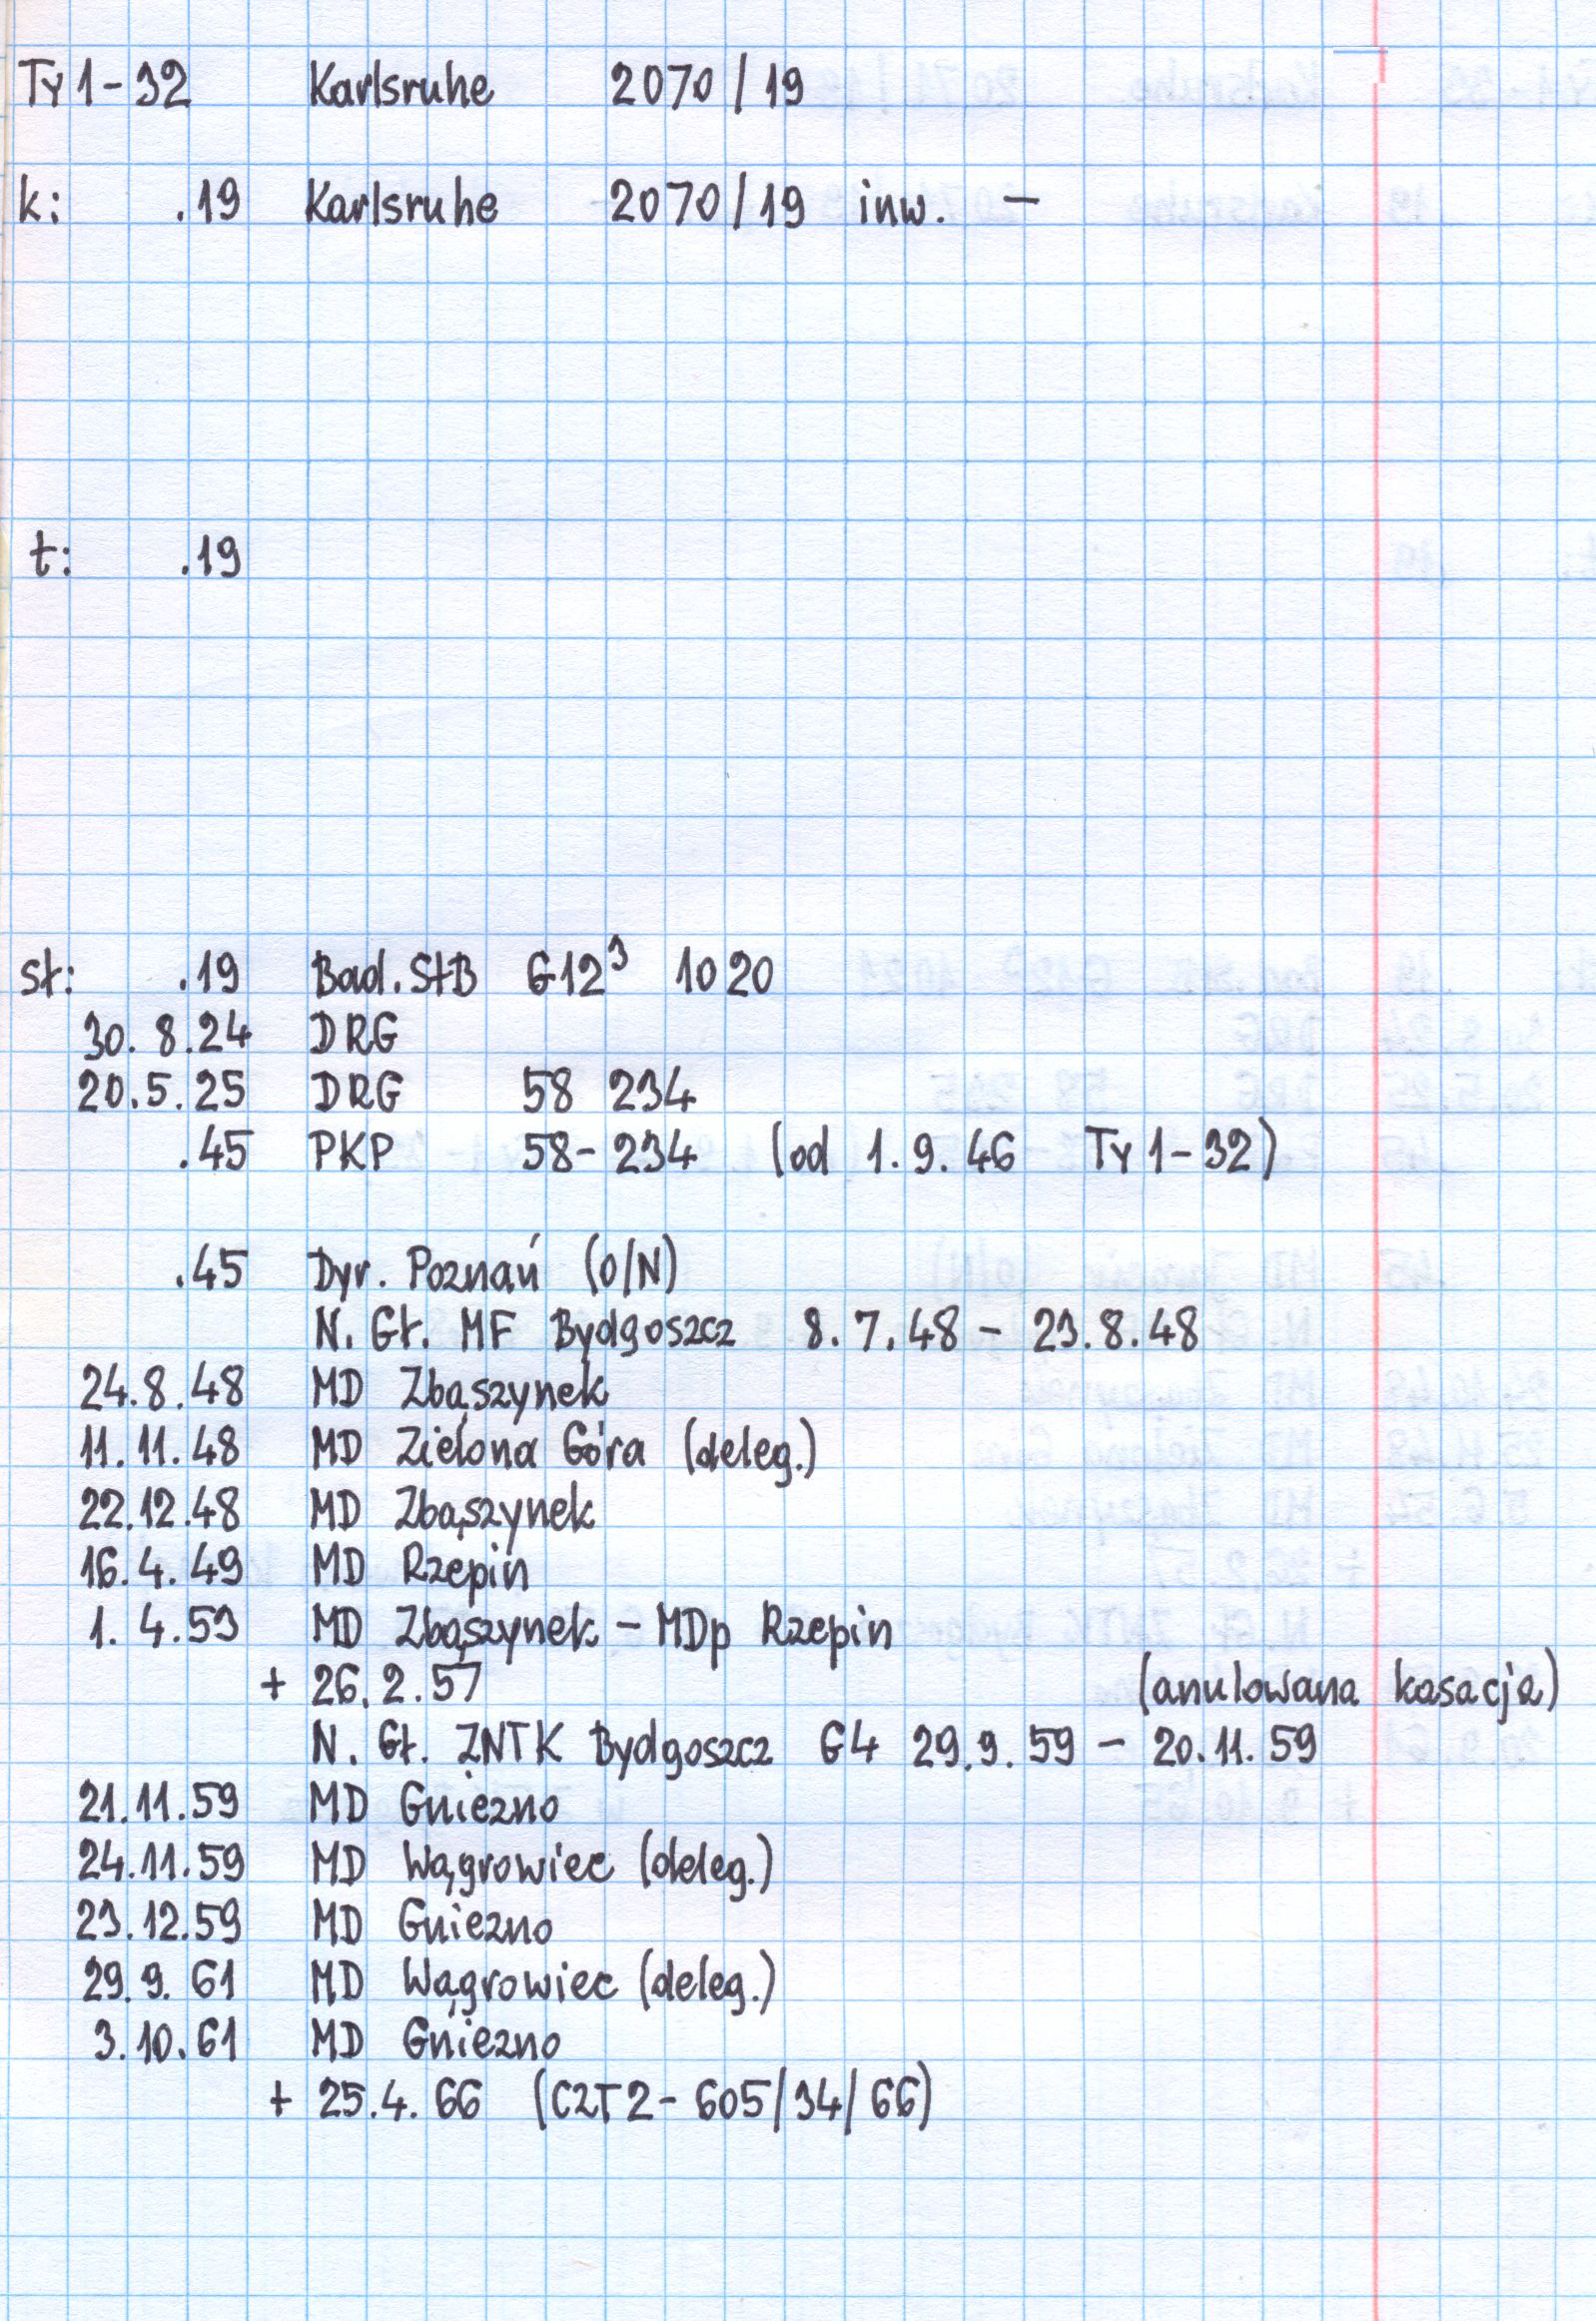 Ty 1-32 Karlsruhe 2070/19
k: .19 Karlsruhe 2070/19 inw. –
t: .19
st: .19 Bad.StB G12³ 1020
30. 8.24 DRG
20.5.25 DRG 58 234
.45 PKP 58-234 (od 1.9.46 Ty 1-32)
.45 Dyr. Poznań (O/N)
N. Gł. MF Bydgoszcz 8.7.48 – 23.8.48
24.8.48 MD Zbąszynek
11.11.48 MD Zielona Góra (deleg.)
22.12.48 MD Zbąszynek
16.4.49 MD Rzepin
1.4.53 MD Zbąszynek – MDp Rzepin
+ 26.2.57 (anulowana kasacja)
N. Gł. ZNTK Bydgoszcz G4 29.9.59 – 20.11.59
21.11.59 MD Gniezno
24.11.59 MD Wągrowiec (deleg.)
23.12.59 MD Gniezno
29.9.61 MD Wągrowiec (deleg.)
3.10.61 MD Gniezno
+ 25.4.66 (CZT2-605/34/66)